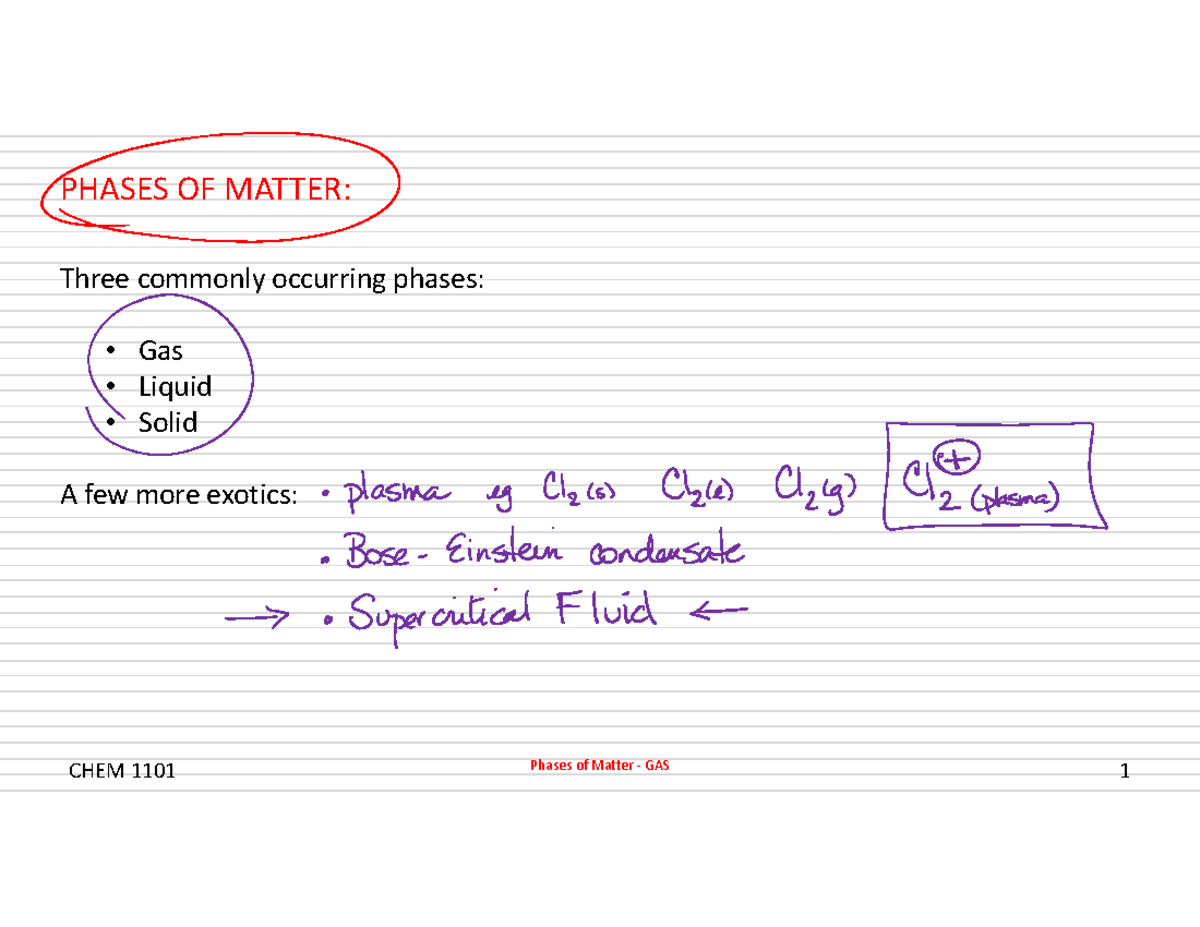 PHASES OF MATTER:
Three commonly occurring phases:
• Gas
• Liquid
• Solid
A few more exotics: • plasma eg Cl₂(s) Cl₂(l) Cl₂(g) Cl₂⁺(plasma)
• Bose-Einstein condensate
→ • Supercritical Fluid ←
CHEM 1101 Phases of Matter - GAS 1